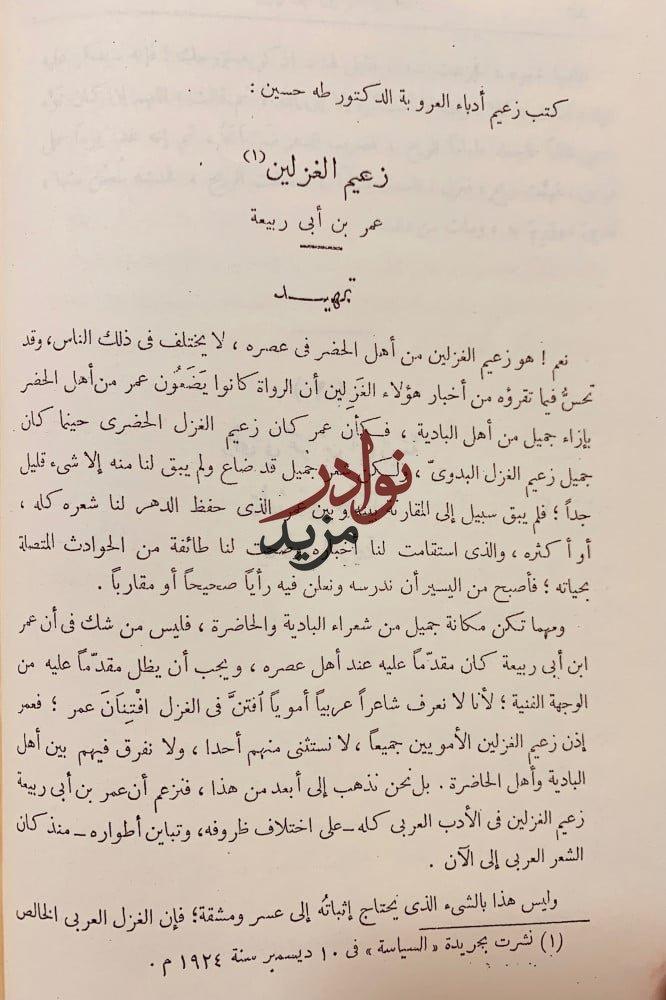 كتب زعيم أدباء العروبة الدكتور طه حسين :
زعيم الغزلين (١)
عمر بن أبى ربيعة
تمهيد
نعم ! هو زعيم الغزلين من أهل الحضر فى عصره ، لا يختلف فى ذلك الناس ، وقد
تحسُّ فيما تقرؤه من أخبار هؤلاء الغَزِلين أن الرواة كانوا يَضَعُون عمر من أهل الحضر
بإزاء جميل من أهل البادية ، فكأن عمر كان زعيم الغزل الحضرى حينما كان
جميل زعيم الغزل البدوىّ ، ولكن شعر جميل قد ضاع ولم يبق لنا منه إلا شىء قليل
جداً ؛ فلم يبق سبيل إلى المقارنة بينه وبين عمر الذى حفظ الدهر لنا شعره كله ،
أو أكثره ، والذى استقامت لنا أخباره وصحت لنا طائفة من الحوادث المتصلة
بحياته ؛ فأصبح من اليسير أن ندرسه ونعلن فيه رأياً صحيحاً أو مقارباً .
ومهما تكن مكانة جميل من شعراء البادية والحاضرة ، فليس من شك فى أن عمر
ابن أبى ربيعة كان مقدّماً عليه عند أهل عصره ، ويجب أن يظل مقدّماً عليه من
الوجهة الفنية ؛ لأنا لا نعرف شاعراً عربياً أموياً ٱفتنَّ فى الغزل افْتِنَانَ عمر ؛ فعمر
إذن زعيم الغزلين الأمويين جميعاً ، لا نستثنى منهم أحدا ، ولا نفرق فيهم بين أهل
البادية وأهل الحاضرة . بل نحن نذهب إلى أبعد من هذا ، فنزعم أن عمر بن أبى ربيعة
زعيم الغزلين فى الأدب العربى كله – على اختلاف ظروفه ، وتباين أطواره – منذ كان
الشعر العربى إلى الآن .
وليس هذا بالشىء الذى يحتاج إثباتُه إلى عسر ومشقة ؛ فإن الغزل العربى الخالص
(١) نشرت بجريدة « السياسة » فى ١٠ ديسمبر سنة ١٩٢٤ م .
نوادر
مزيد